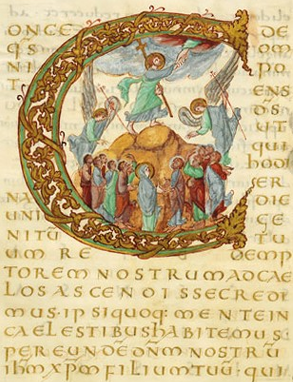 CONCE DE
QS OM
NI PO
T ENS
DS
UT
QUI
HODI
ER
NA DIE
UNI GE
NITŪ TU
UM RE DEMP
TOREM NOSTRUM AD CAE
LOS ASCENDISSE CREDI
MUS· IPSI QUOQ· MENTE IN
CAELESTIBUS HABITEMUS
PER EUNDĒ DN̄M NOSTRŪ
IHM XPM FILIUM TUŪ· QUI